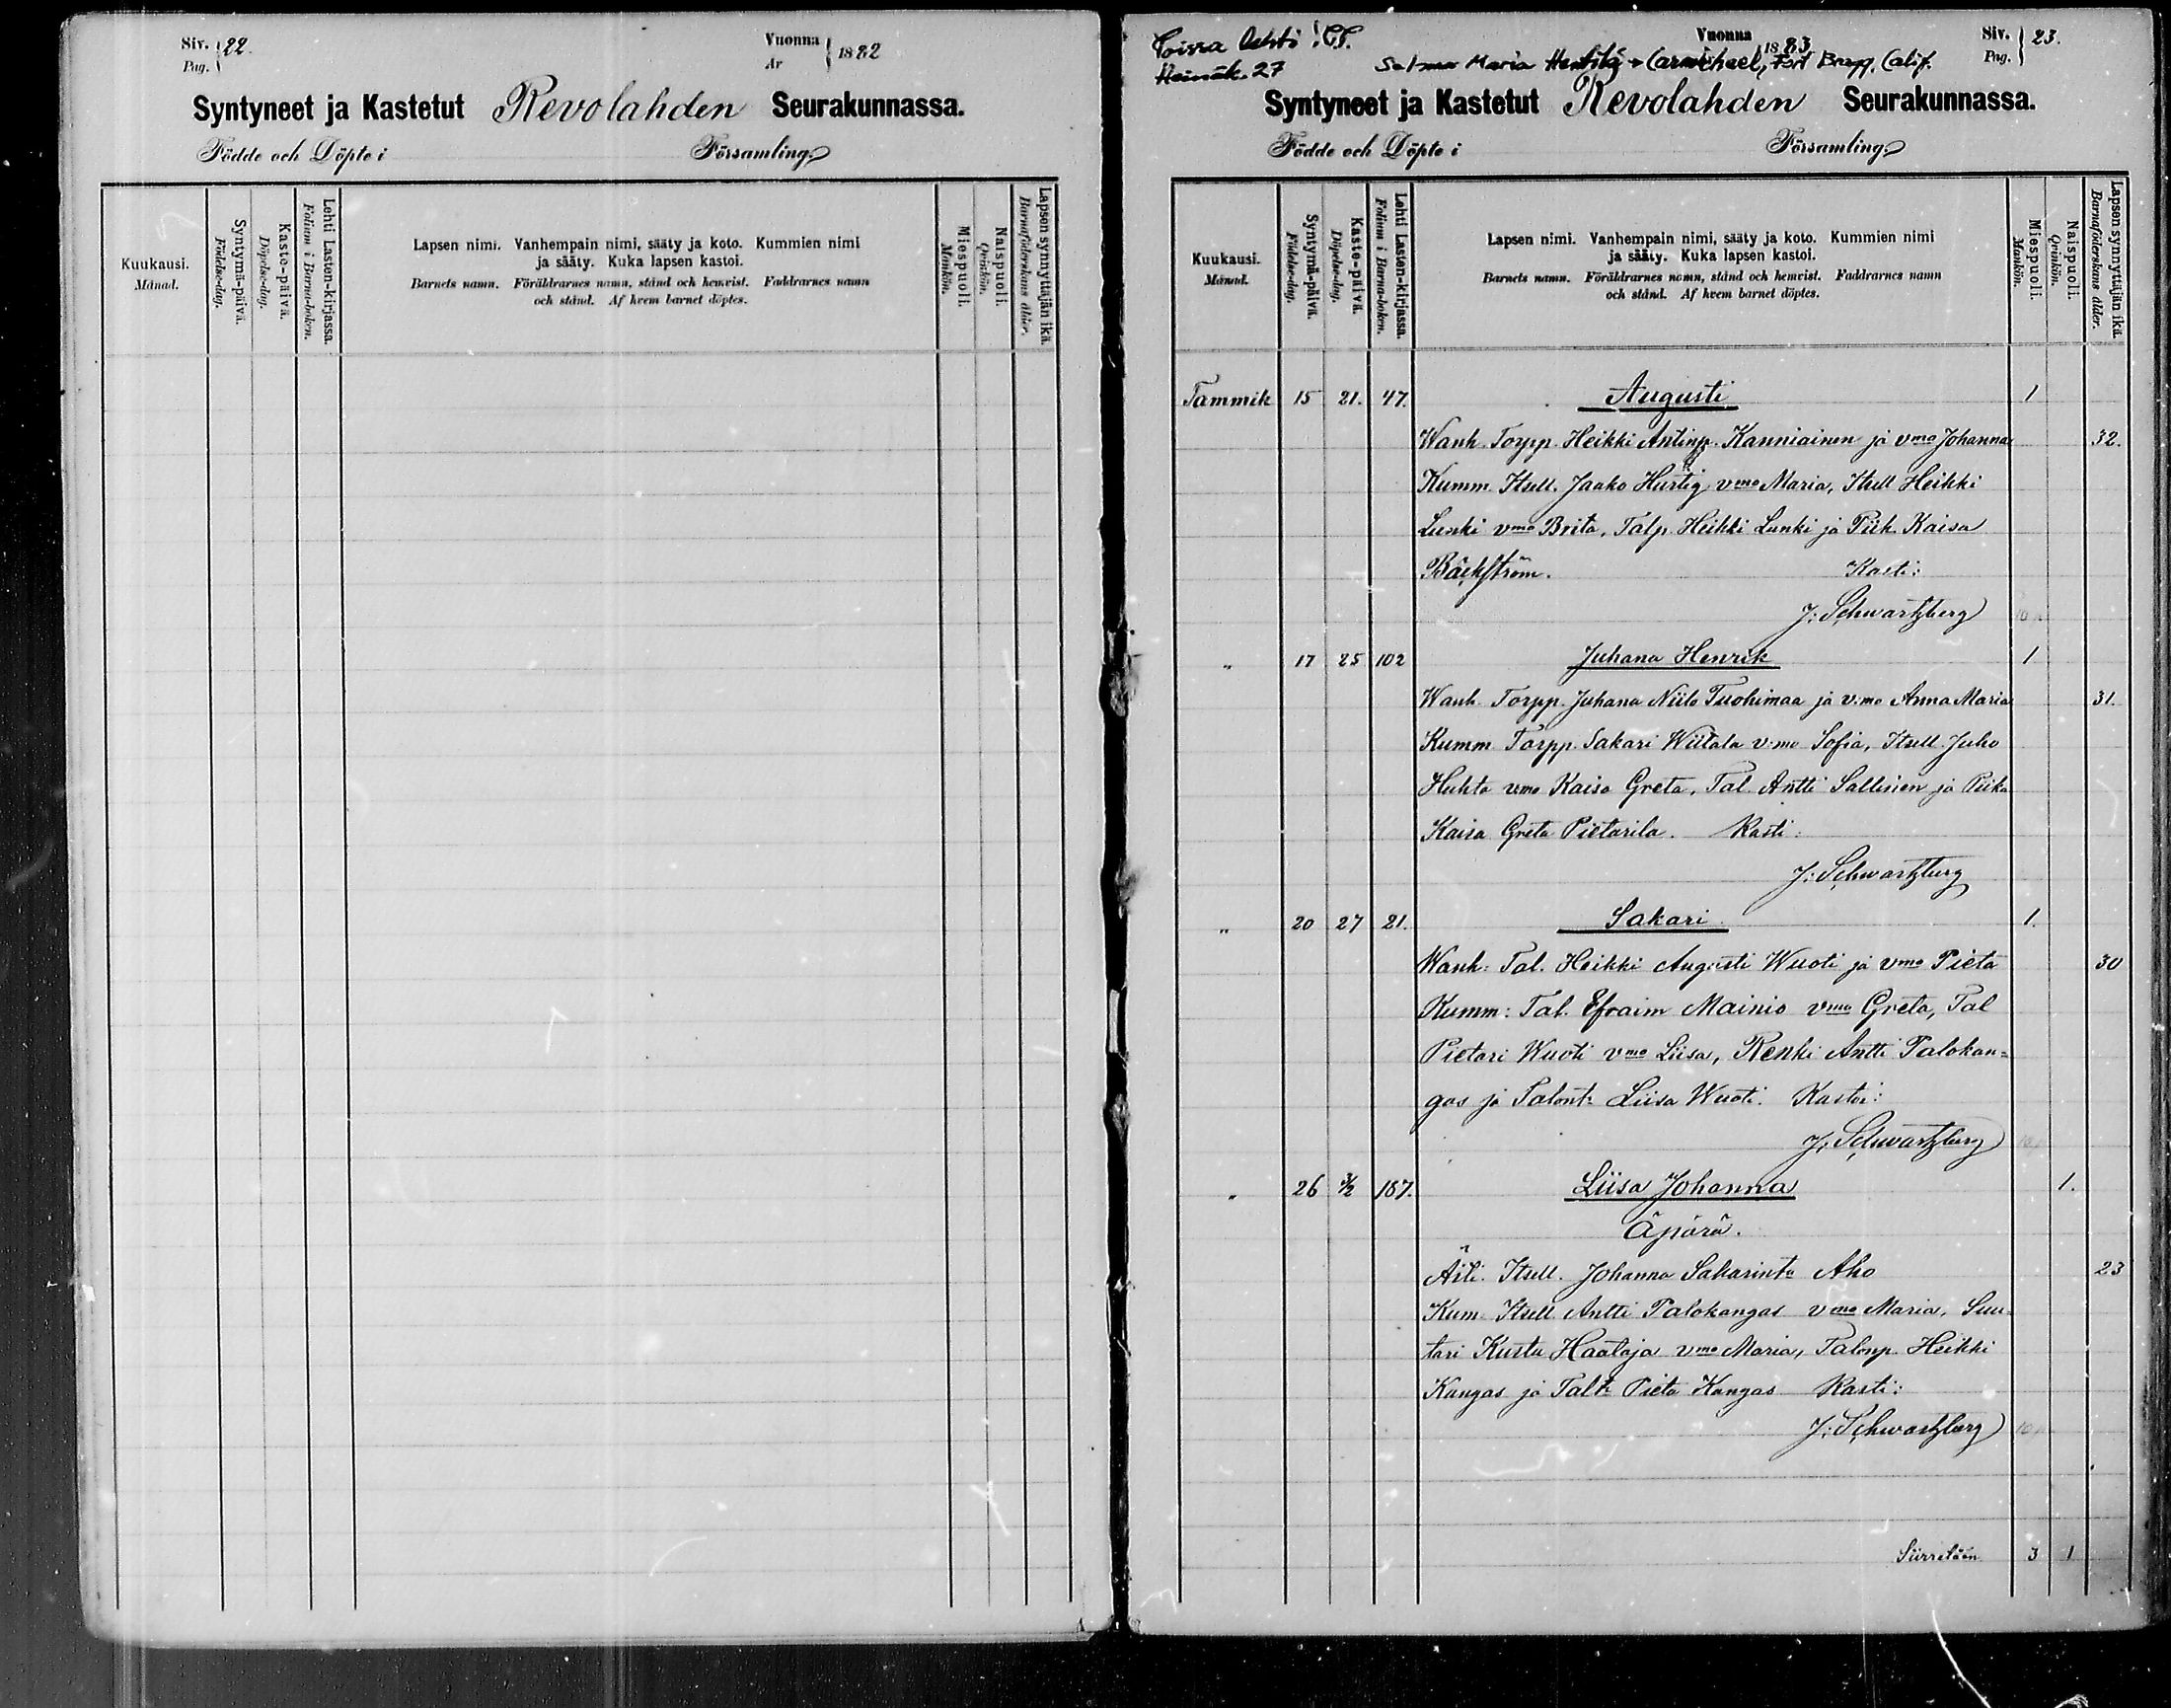 Siv. 22.
Pag.
Vuonna 1882
Ar
Syntyneet ja Kastetut Revolahden Seurakunnassa.
Födde och Döpte i Församling.
Kuukausi.
Månad.
Syntymä-päivä.
Födelse-dag.
Kaste-päivä.
Döpelse-dag.
Lehti Lasten-kirjassa.
Folium i Barna-boken.
Lapsen nimi. Vanhempain nimi, sääty ja koto. Kummien nimi
ja sääty. Kuka lapsen kastoi.
Barnets namn. Föräldrarnes namn, stånd och hemvist. Faddrarnes namn
och stånd. Af hvem barnet döptes.
Miespuoli.
Mankön.
Naispuoli.
Qvinkön.
Lapsen synnyttäjän ikä.
Barnaföderskans ålder.
Heinäk. 27
Maria Carmichael, Fort Bragg, Calif.
Vuonna 1883
Siv. 23.
Pag.
Syntyneet ja Kastetut Revolahden Seurakunnassa.
Födde och Döpte i Församling.
Kuukausi.
Månad.
Syntymä-päivä.
Födelse-dag.
Kaste-päivä.
Döpelse-dag.
Lehti Lasten-kirjassa.
Folium i Barna-boken.
Lapsen nimi. Vanhempain nimi, sääty ja koto. Kummien nimi
ja sääty. Kuka lapsen kastoi.
Barnets namn. Föräldrarnes namn, stånd och hemvist. Faddrarnes namn
och stånd. Af hvem barnet döptes.
Miespuoli.
Mankön.
Naispuoli.
Qvinkön.
Lapsen synnyttäjän ikä.
Barnaföderskans ålder.
Tammik 15 21. 47. Augusti 1
Wanh. Torpp. Heikki Antinp. Kanniainen ja vmo Johanna 32.
Kumm. Itsell. Jaako Hurtig vmo Maria, Itsell Heikki
Lunki vmo Brita, Talp. Heikki Lunki ja Piik. Kaisa
Bäckström. Kasti:
J: Schwartzberg
" 17 25 102 Juhana Henrik 1
Wanh. Torpp. Juhana Niilo Tuohimaa ja v:mo Anna Maria 31.
Kumm Torpp. Sakari Wiitala v:mo Sofia, Itsell. Juho
Huhta vmo Kaisa Greta, Tal. Antti Sallinen ja Piika
Kaisa Greta Pietarila. Kasti:
J: Schwartzberg
" 20 27 21. Sakari 1.
Wanh: Tal. Heikki Augusti Wuoti ja vmo Pieta 30
Kumm: Tal. Efraim Mainio vmo Greta, Tal
Pietari Wuoti vmo Liisa, Renki Antti Palokan=
gas ja Talont: Liisa Wuoti. Kastoi:
J: Schwartzberg
" 26 3/2 187. Liisa Johanna 1.
Äpärä.
Äiti. Itsell. Johanna Sakarint. Aho 23
Kum. Itsell Antti Palokangas vmo Maria, Suu=
tari Kusta Haataja vmo Maria, Talonp. Heikki
Kangas ja Talt: Pieta Kangas Kasti:
J: Schwartzberg
Siirretään 3 1